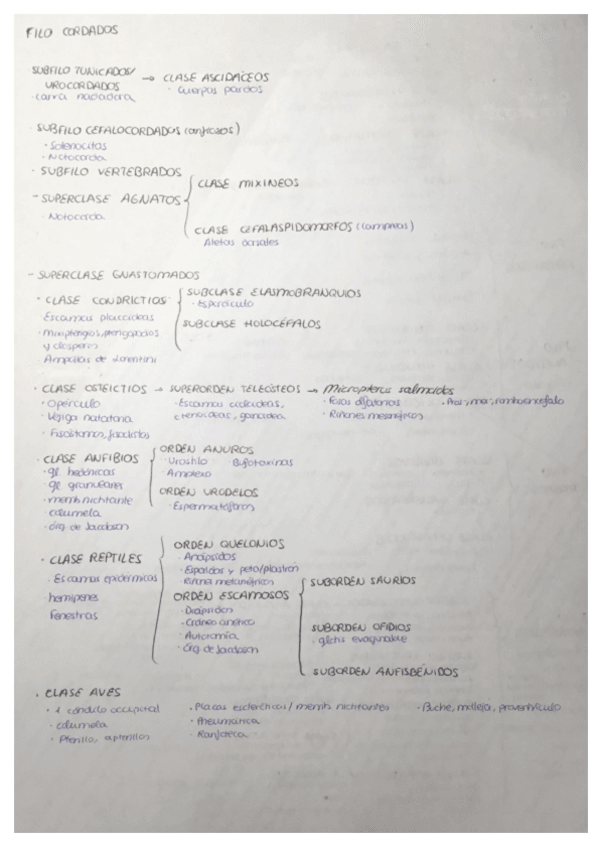 FILO CORDADOS
SUBFILO TUNICADOS/ → CLASE ASCIDIACEOS
UROCORDADOS · Cuerpos pardos
· Larva nadadora
· SUBFILO CEFALOCORDADOS (anfioxos)
· Solenocitos
· Notocorda
· SUBFILO VERTEBRADOS
CLASE MIXINEOS
- SUPERCLASE AGNATOS
· Notocorda
CLASE CEFALASPIDOMORFOS (lampreas)
Aletas dorsales
- SUPERCLASE GNASTOMADOS
SUBCLASE ELASMOBRANQUIOS
· CLASE CONDRICTIOS · Espiráculo
Escamas placoideas
SUBCLASE HOLOCÉFALOS
y
· Ampollas de Lorentini
· CLASE OSTEICTIOS → SUPERORDEN TELEÓSTEOS → Micropterus salmoides
· Opérculo · Escamas cicloideas, · Fosas olfatorias
· Vejiga natatoria ctenoideas, ganoidea · Riñones mesonéfricos
· Fisóstomos,
ORDEN ANUROS
· CLASE ANFIBIOS · Urostilo Bufotoxinas
· gl. hedónicas · Amplexo
· gl. granulares
ORDEN URODELOS
· memb. nictitante · Espermatóforos
· columela
· órg. de Jacobson
ORDEN QUELONIOS
· CLASE REPTILES · Anápsidos
· Espaldar y peto/plastrón
· Escamas epidérmicas · Riñones metanéfricos
ORDEN ESCAMOSOS SUBORDEN SAURIOS
hemipenes · Diápsidos
Fenestras · Cráneo cinético SUBORDEN OFIDIOS
· Autotomía · glotis evaginable
· órg de Jacobson
SUBORDEN ANFISBÉNIDOS
· CLASE AVES
· 1 cóndilo occipital · Placas escleróticas / memb. nictitantes · Buche, molleja, proventrículo
· columela · Pneumática
· Pterilos, apterilos · Ranfoteca